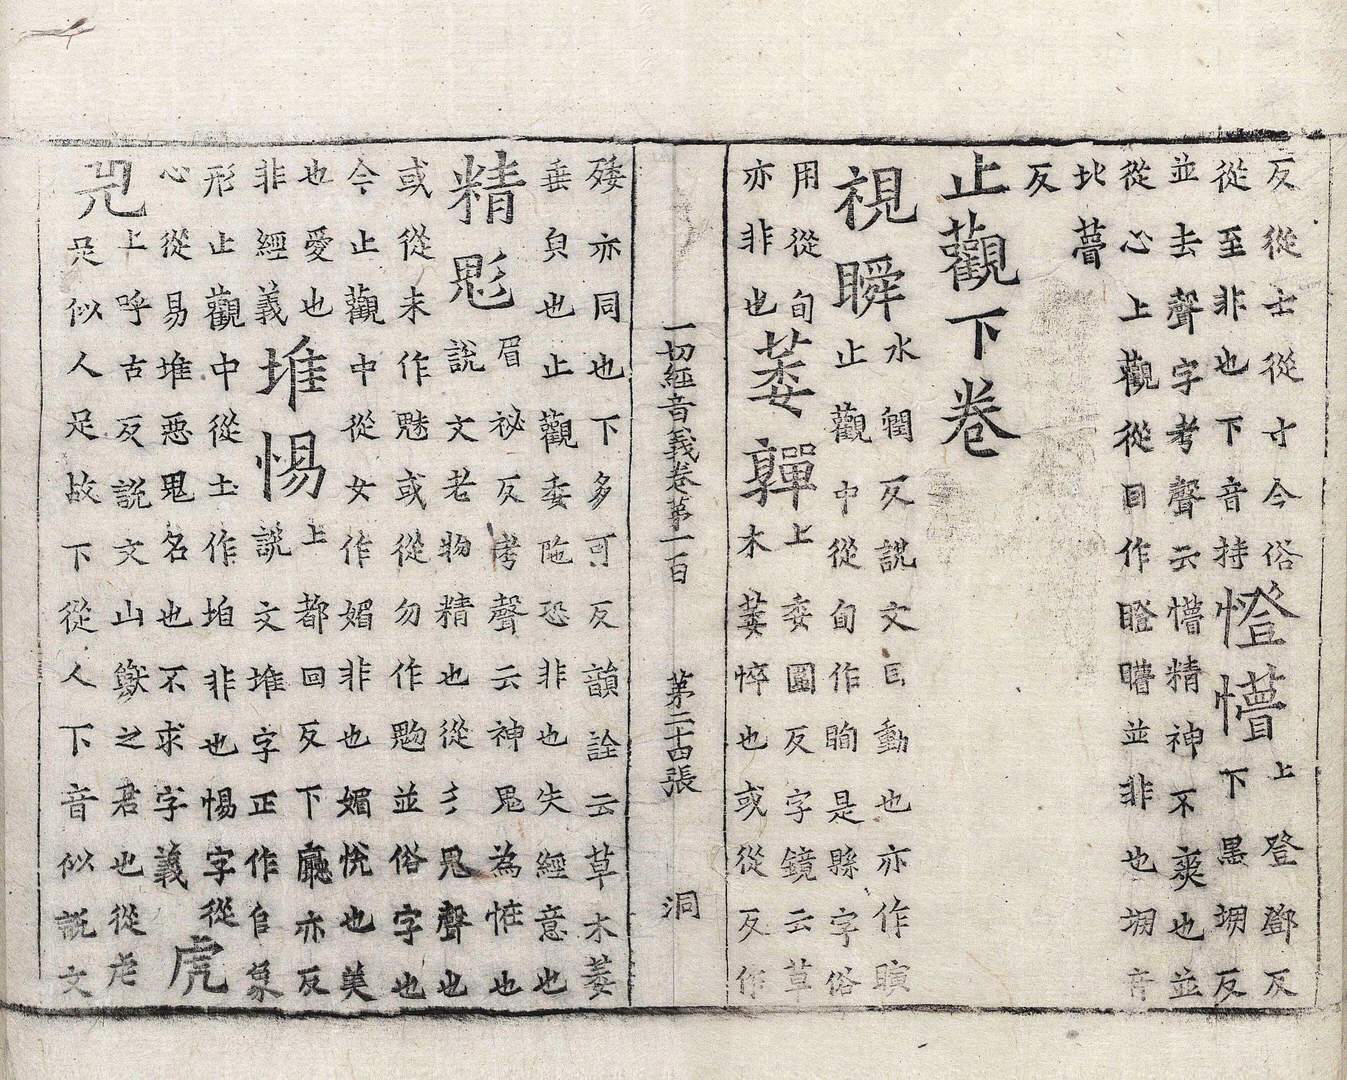 反從士從寸今俗
從至非也下音持憕懵上登鄧反
並去聲字考聲云懵精神不爽也並
從心上觀從目作瞪瞢並非也堋音
北瞢
反
止觀下卷
視瞬水潤反説文目動也亦作瞚
止觀中從旬作眴是縣字俗
用從旬
亦非也萎嚲上委圓反字鏡云草
木萎悴也或從反作
一切經音義卷第一百 第二十四張 洞
矮亦同也下多可反韻詮云草木萎
垂皃也止觀委陁恐非也失經意也
精鬽眉祕反考聲云神鬼為恠也
說文老物精也從彡鬼聲也
或從未作魅或從勿作魩並俗字也
今止觀中從女作媚非也媚悅也美
也愛也
非經義堆惕上都回反下廳亦反
說文堆字正作𠂤象
形止觀中從土作垍非也惕字從
心從易堆惕鬼名也不求字義虎
兕上呼古反説文山獸之君也從虍
足似人足故下從人下音似説文